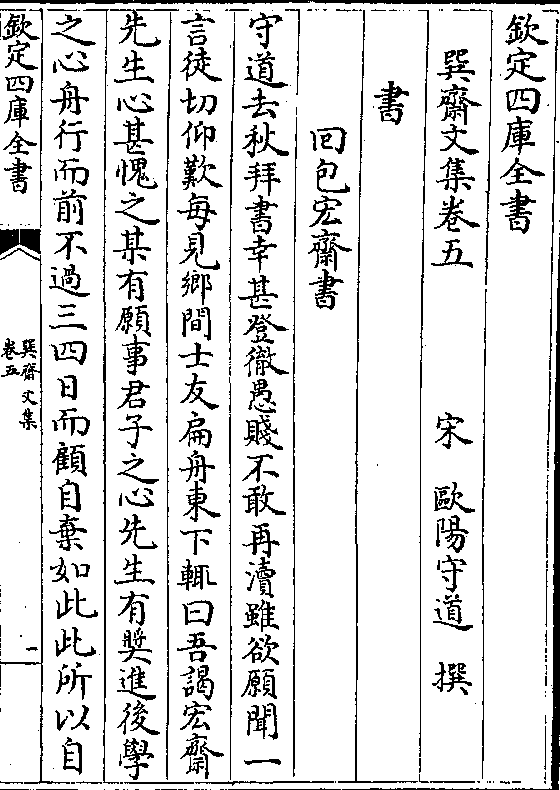 欽定四庫全書
巽齋文集卷五
宋 歐陽守道 撰
書
回包宏齋書
守道去秋拜書幸甚登徹愚賤不敢再瀆雖欲願聞一
言徒切仰歎每見鄉間士友扁舟東下輒曰吾謁宏齋
先生心甚愧之某有願事君子之心先生有奬進後學
之心舟行而前不過三四日而顧自棄如此此所以自
欽定四庫全書
巽齋文集
卷五
一